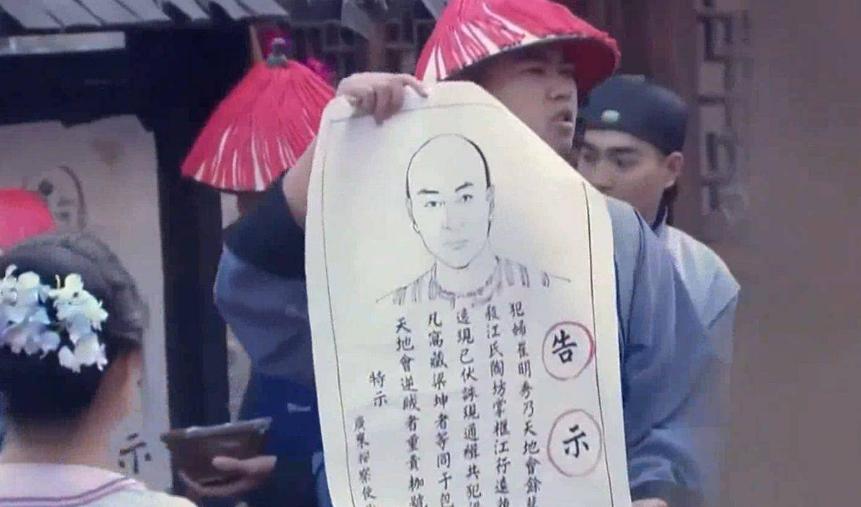 告示
犯婦崔明秀乃天地會餘
殺江氏陶坊掌櫃江行遠
遠現已伏誅現通緝共犯
凡窩藏梁坤者等同于包
天地會逆賊者重責枷
特示
廣東按察使
示